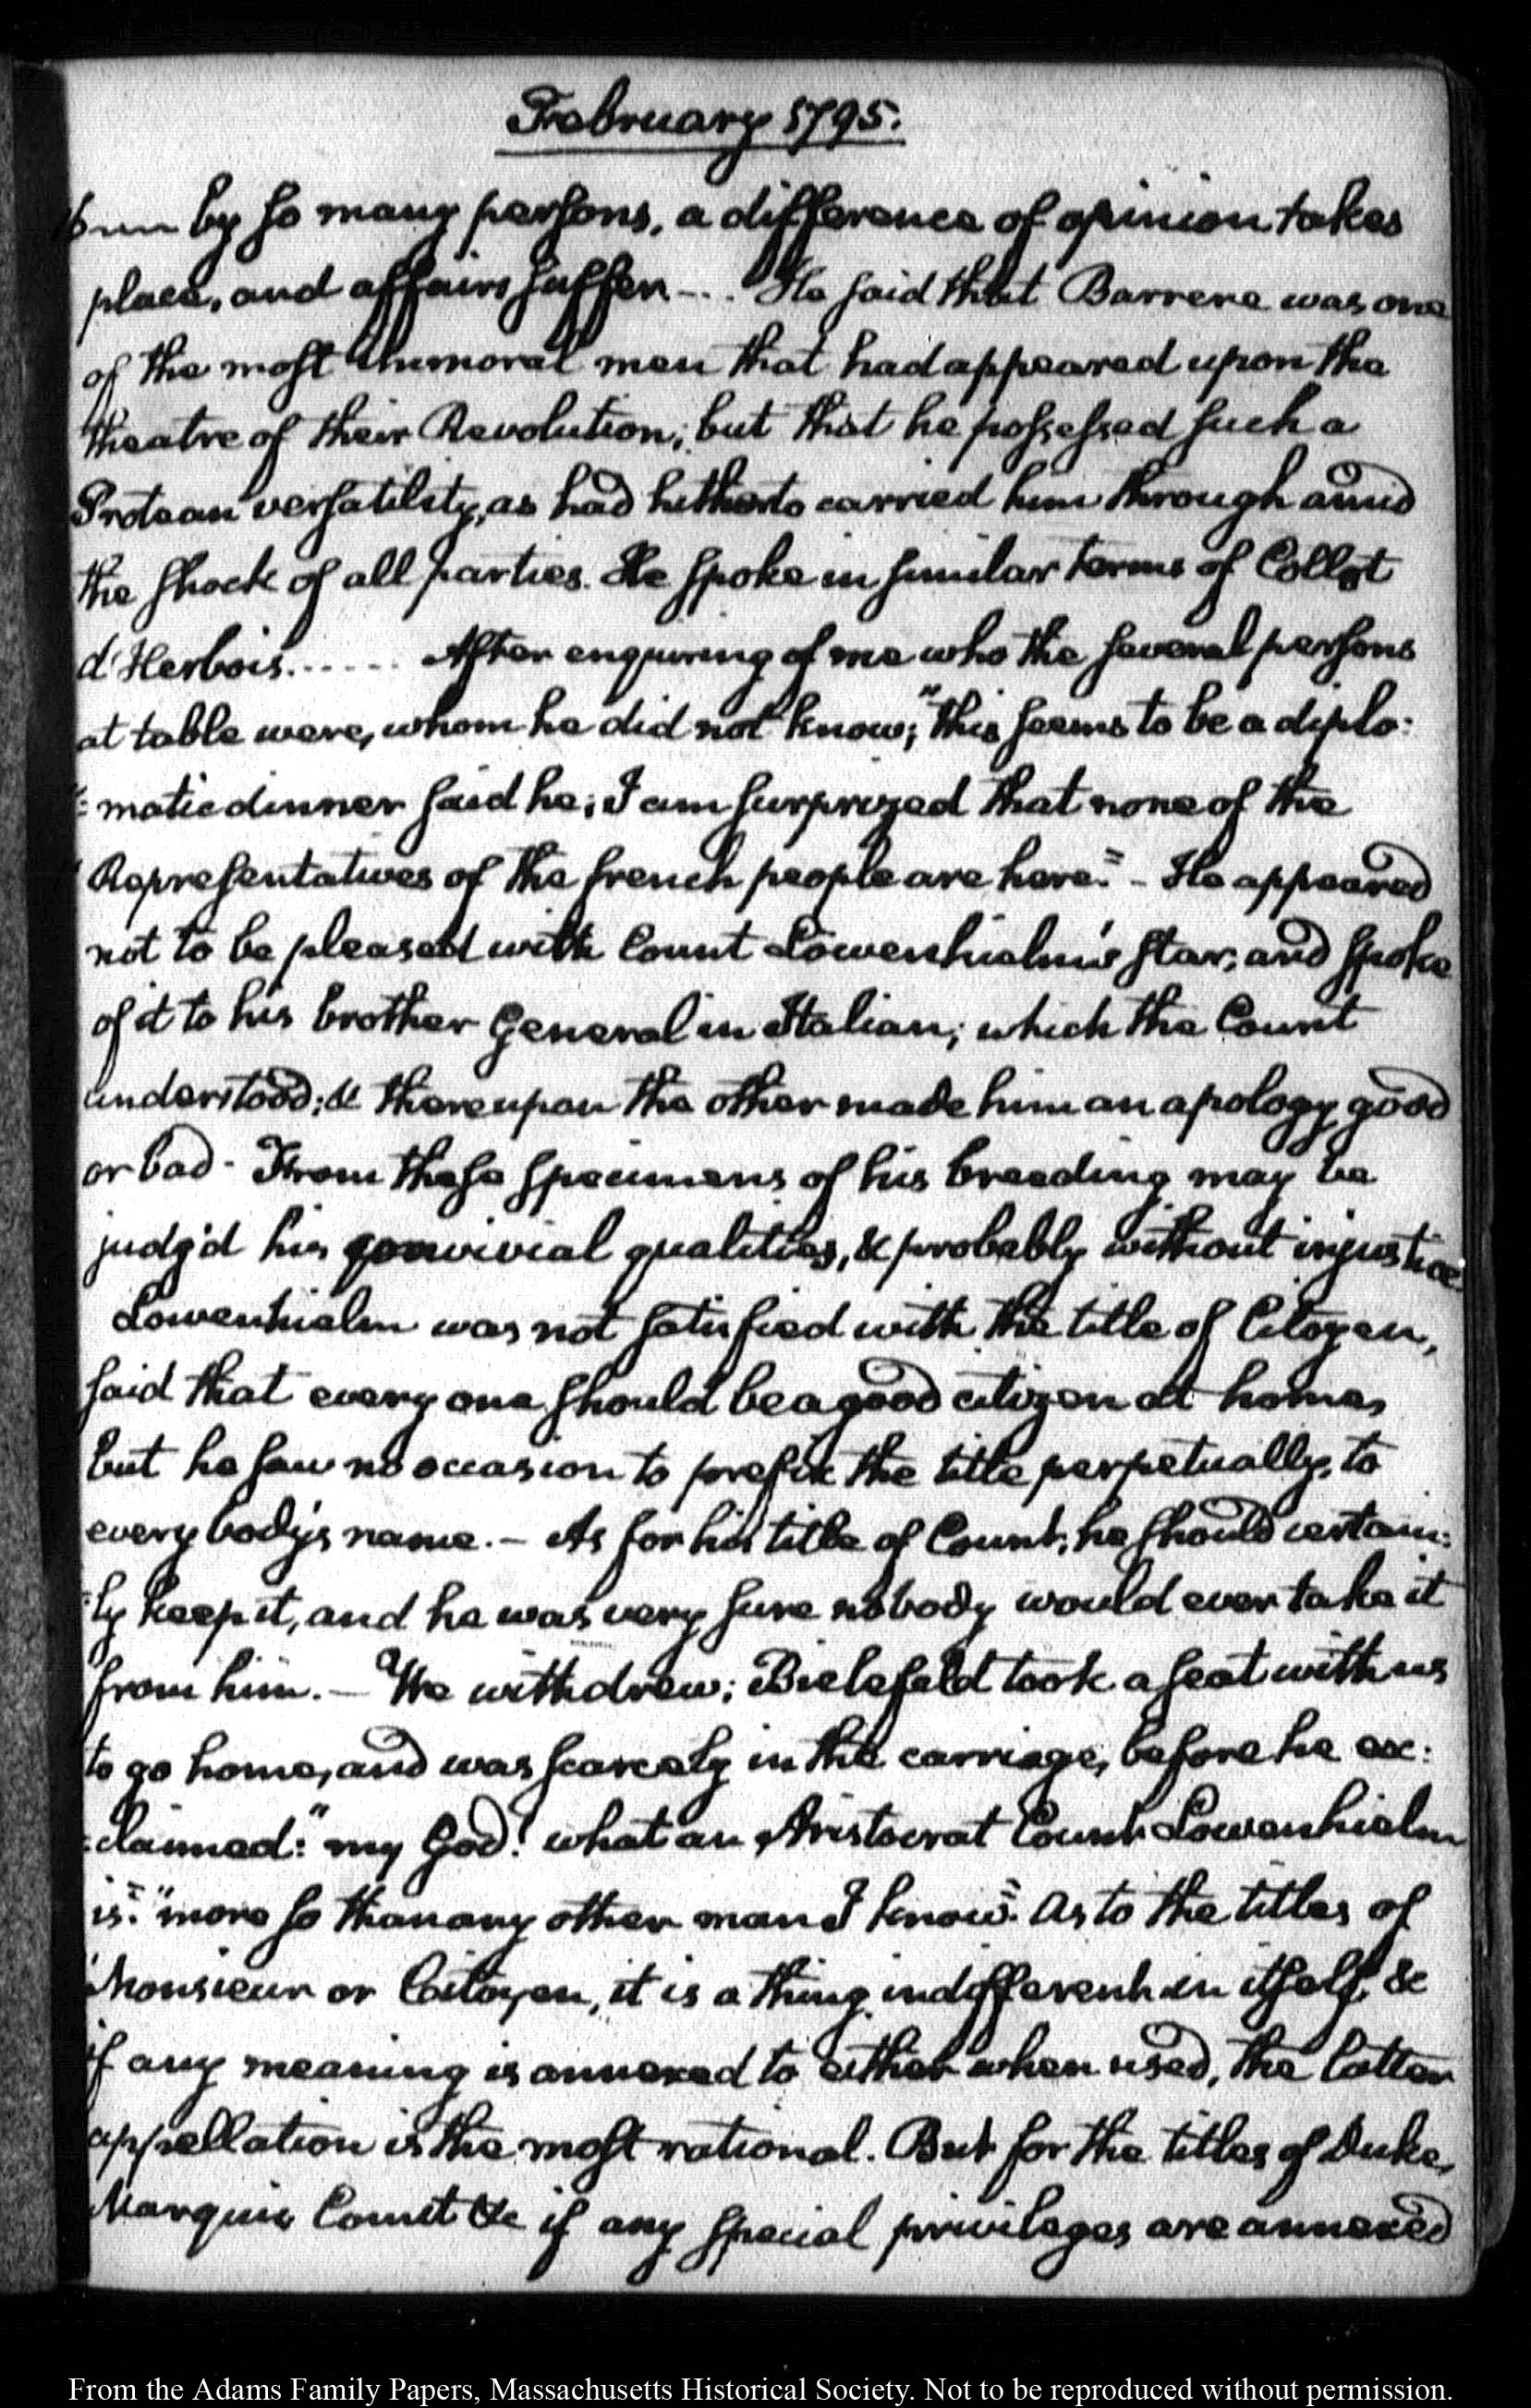 February 1795.
by so many persons, a difference of opinion takes
place, and affairs suffer — . . . He said that Barrere was one
of the most immoral men that had appeared upon the
theatre of their Revolution; but that he possessed such a
Protean versatility, as had hitherto carried him through amid
the shock of all parties. He spoke in similar terms of Collot
d'Herbois. . . . . . After enquiring of me who the several persons
at table were, whom he did not know; "this seems to be a diplo:
": matic dinner said he; I am surprized that none of the
" Representatives of the french people are here." - He appeared
not to be pleased with Count Lowenhielm's star, and spoke
of it to his brother General in Italian; which the Count
understood; & thereupon the other made him an apology good
or bad - From these specimens of his breeding may be
judg'd his convivial qualities, & probably without injustice
Lowenhielm was not satisfied with the title of Citoyen,
said that every one should be a good citizen at home,
but he saw no occasion to prefix the title perpetually, to
every body's name. — As for his title of Count, he should certain:
:ly keep it, and he was very sure nobody would ever take it
from him. — We withdrew; Bielefeld took a seat with us
to go home, and was scarcely in the carriage, before he ex:
:claimed: "my God! what an Aristocrat Count Lowenhielm
is." "more so than any other man I know." As to the titles of
Monsieur or Citoyen, it is a thing indifferent in itself, &
if any meaning is annexed to either when used, the latter
appellation is the most rational. But for the titles of Duke,
Marquis Count &c if any special privileges are annexed
From the Adams Family Papers, Massachusetts Historical Society. Not to be reproduced without permission.